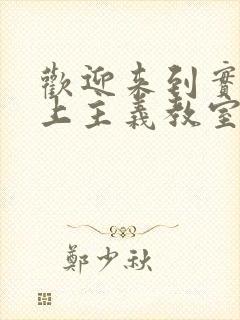 歡迎来到實
上主義教室
鄭少秋